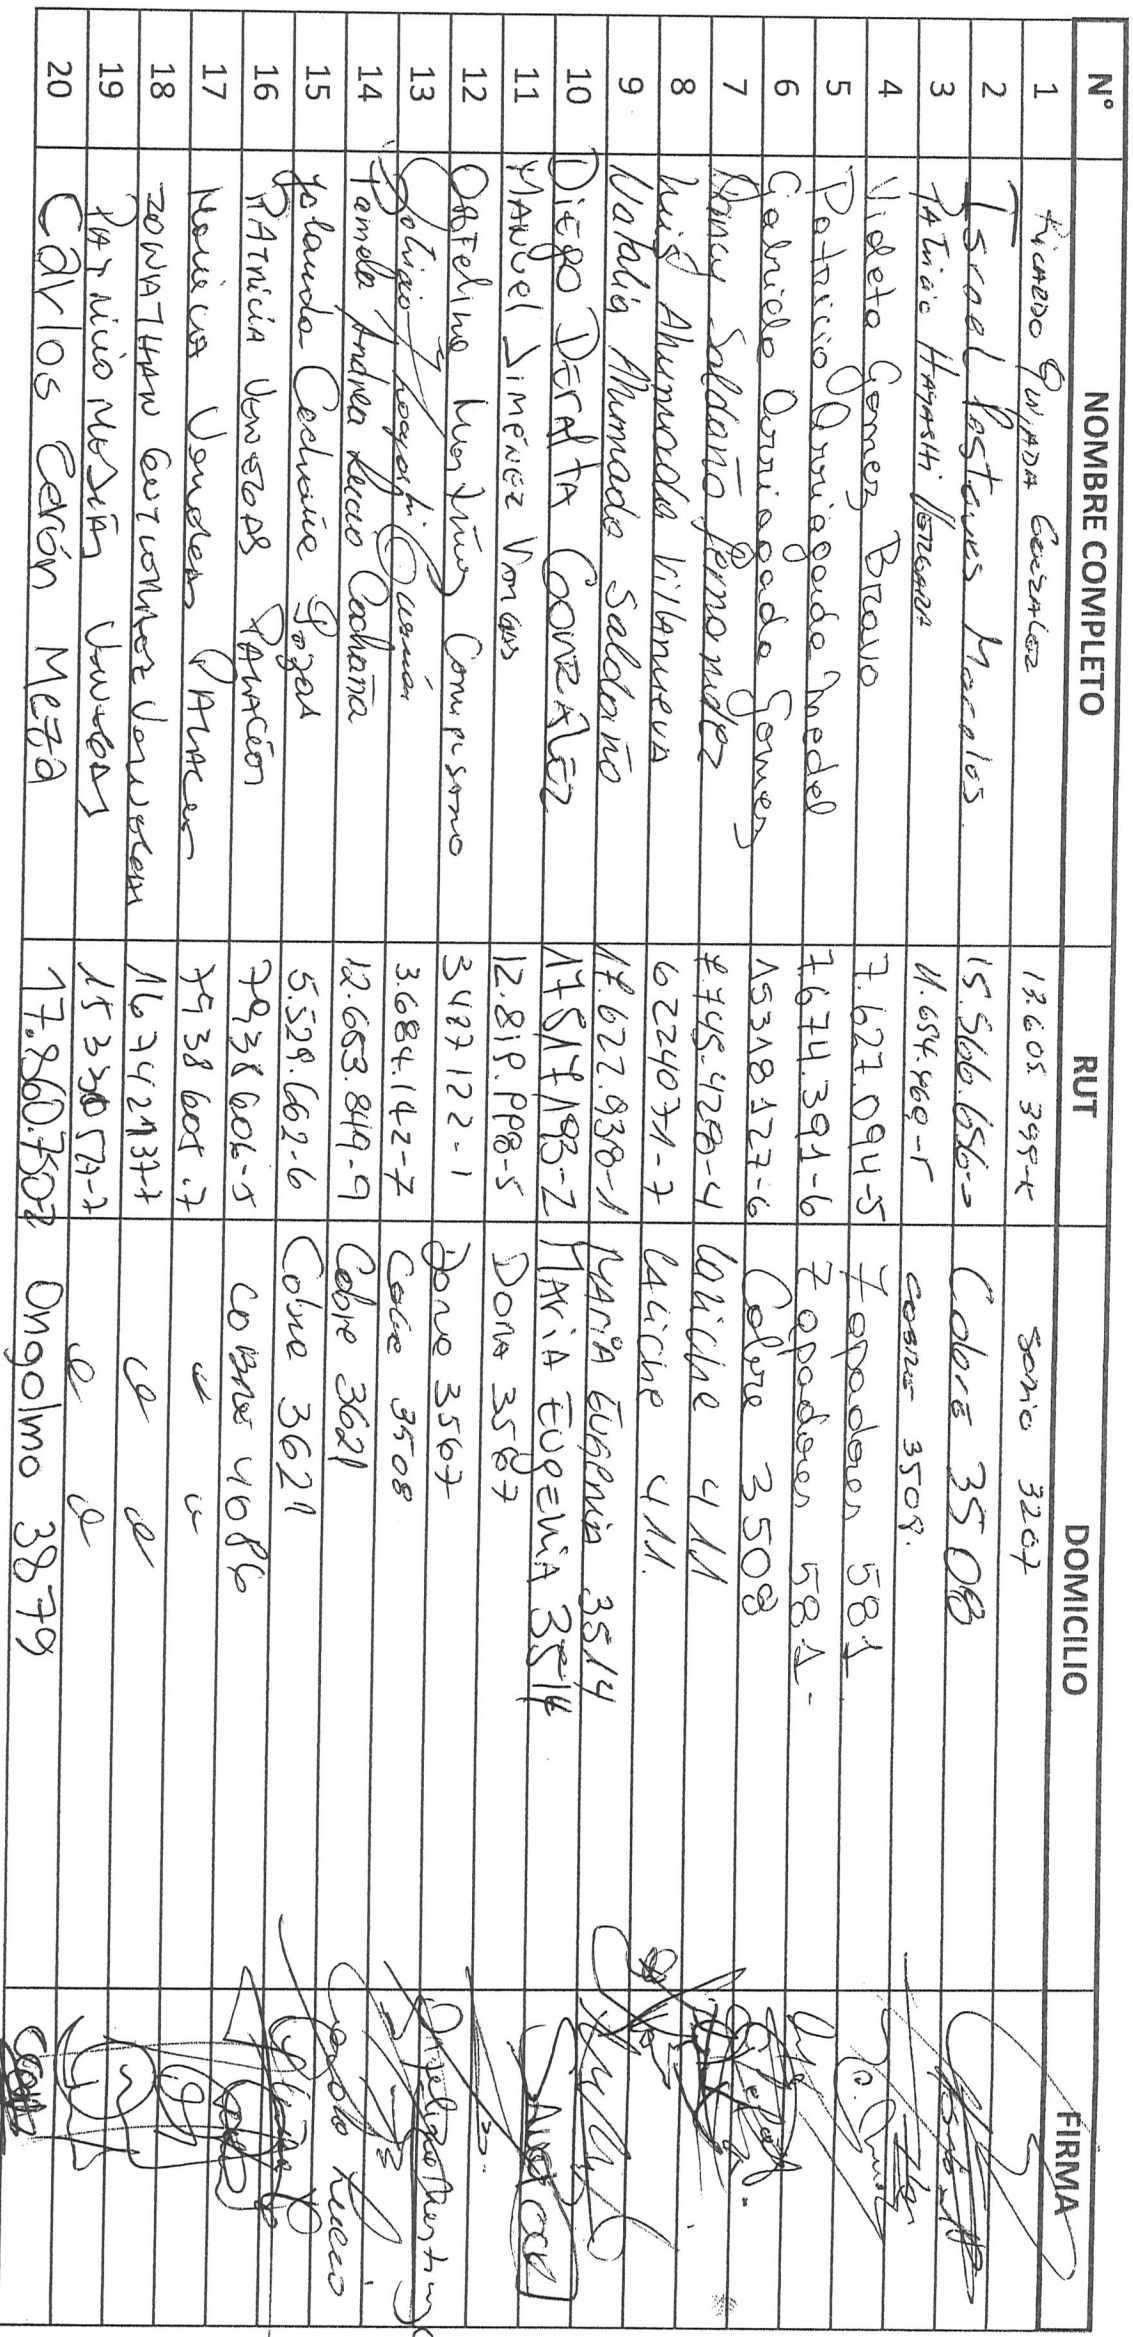 N° NOMBRE COMPLETO RUT DOMICILIO FIRMA
1 Ricardo Quijada González 13.605.399-K Sonia 3207
2 Israel Pastenes Morales. 15.566.656- Cobre 3508
3 Patricio Hayashi Vergara 11.654.460-5 Cobre 3508.
4 Violeta Gomez Bravo 7.627.094-5 Zapadores 581
5 Patricio Arriagada Medel 7.674.391-6 Zapadores 581-
6 Gabriela Arriagada Gomez 15318127-6 Cobre 3508
7 Nancy Saldaño Fernandez 7.745.428-4 Laliche 411
8 Luis Ahumada Villanueva 6224071-7 Laliche 411.
9 Natalia Ahumada Saldaño 17.622.938-1 Maria Eugenia 3514
10 Diego Peralta González 17517193-2 Maria Eugenia 3514
11 Manuel Jiménez Vargas 12.819.998-5 Dora 3567
12 Martínez Campusano 3487122-1 Dora 3567
13 Hayashi 3.684.142-7 Cobre 3508
14 Pamela Andrea Lucio Cachaña 12.663.849-9 Cobre 3621
15 Yolanda Cachaña Pozal 5.529.662-6 Cobre 3621
16 Patricia Venegas Palacios 7938606-5 Cobre 4086
17 Monica Venegas 7938605.7 " "
18 Jonathan Gutierrez Venegas 16742137-7 " "
19 Patricio Mesías Venegas 15330577-7 " "
20 Carlos Cerón Meza 17.860.750-2 Ongolmo 3879